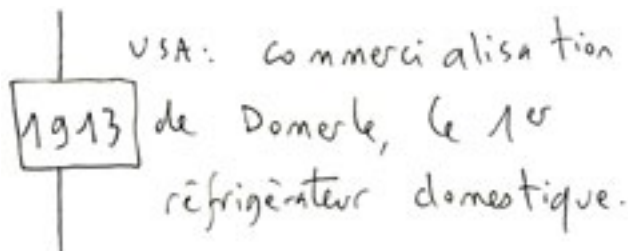 USA: commercialisation
1913 de Domerle, le 1er
réfrigérateur domestique.